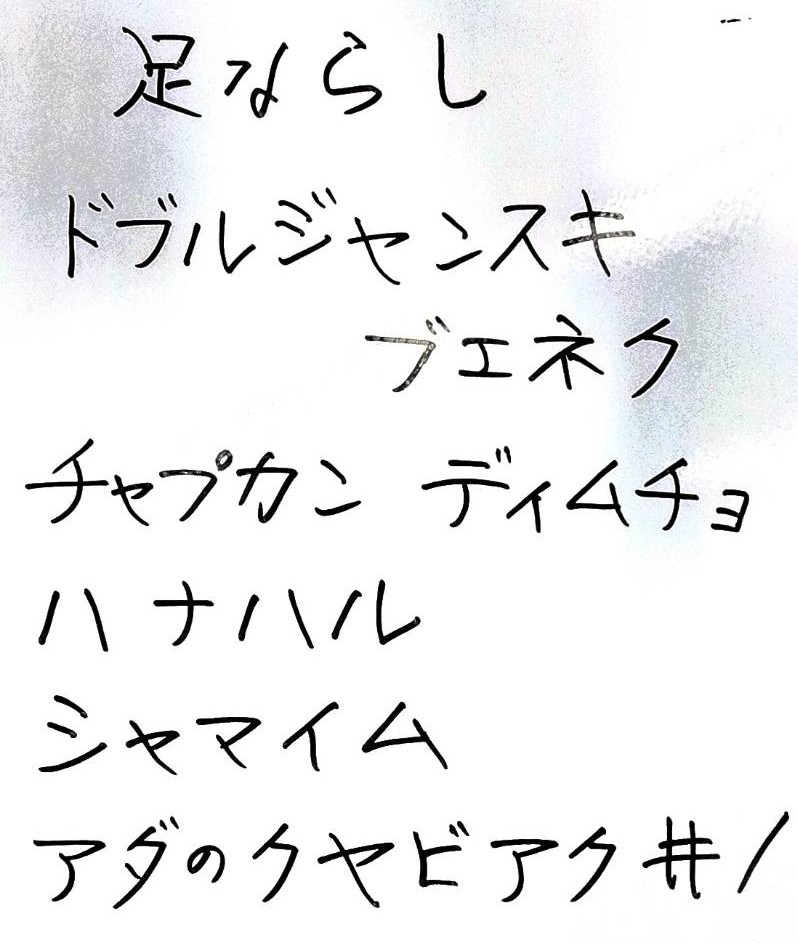 足ならし
ドブルジャンスキ
ブエネク
チャプカン ディムチョ
ハナハル
シャマイム
アダのクヤビアク #1